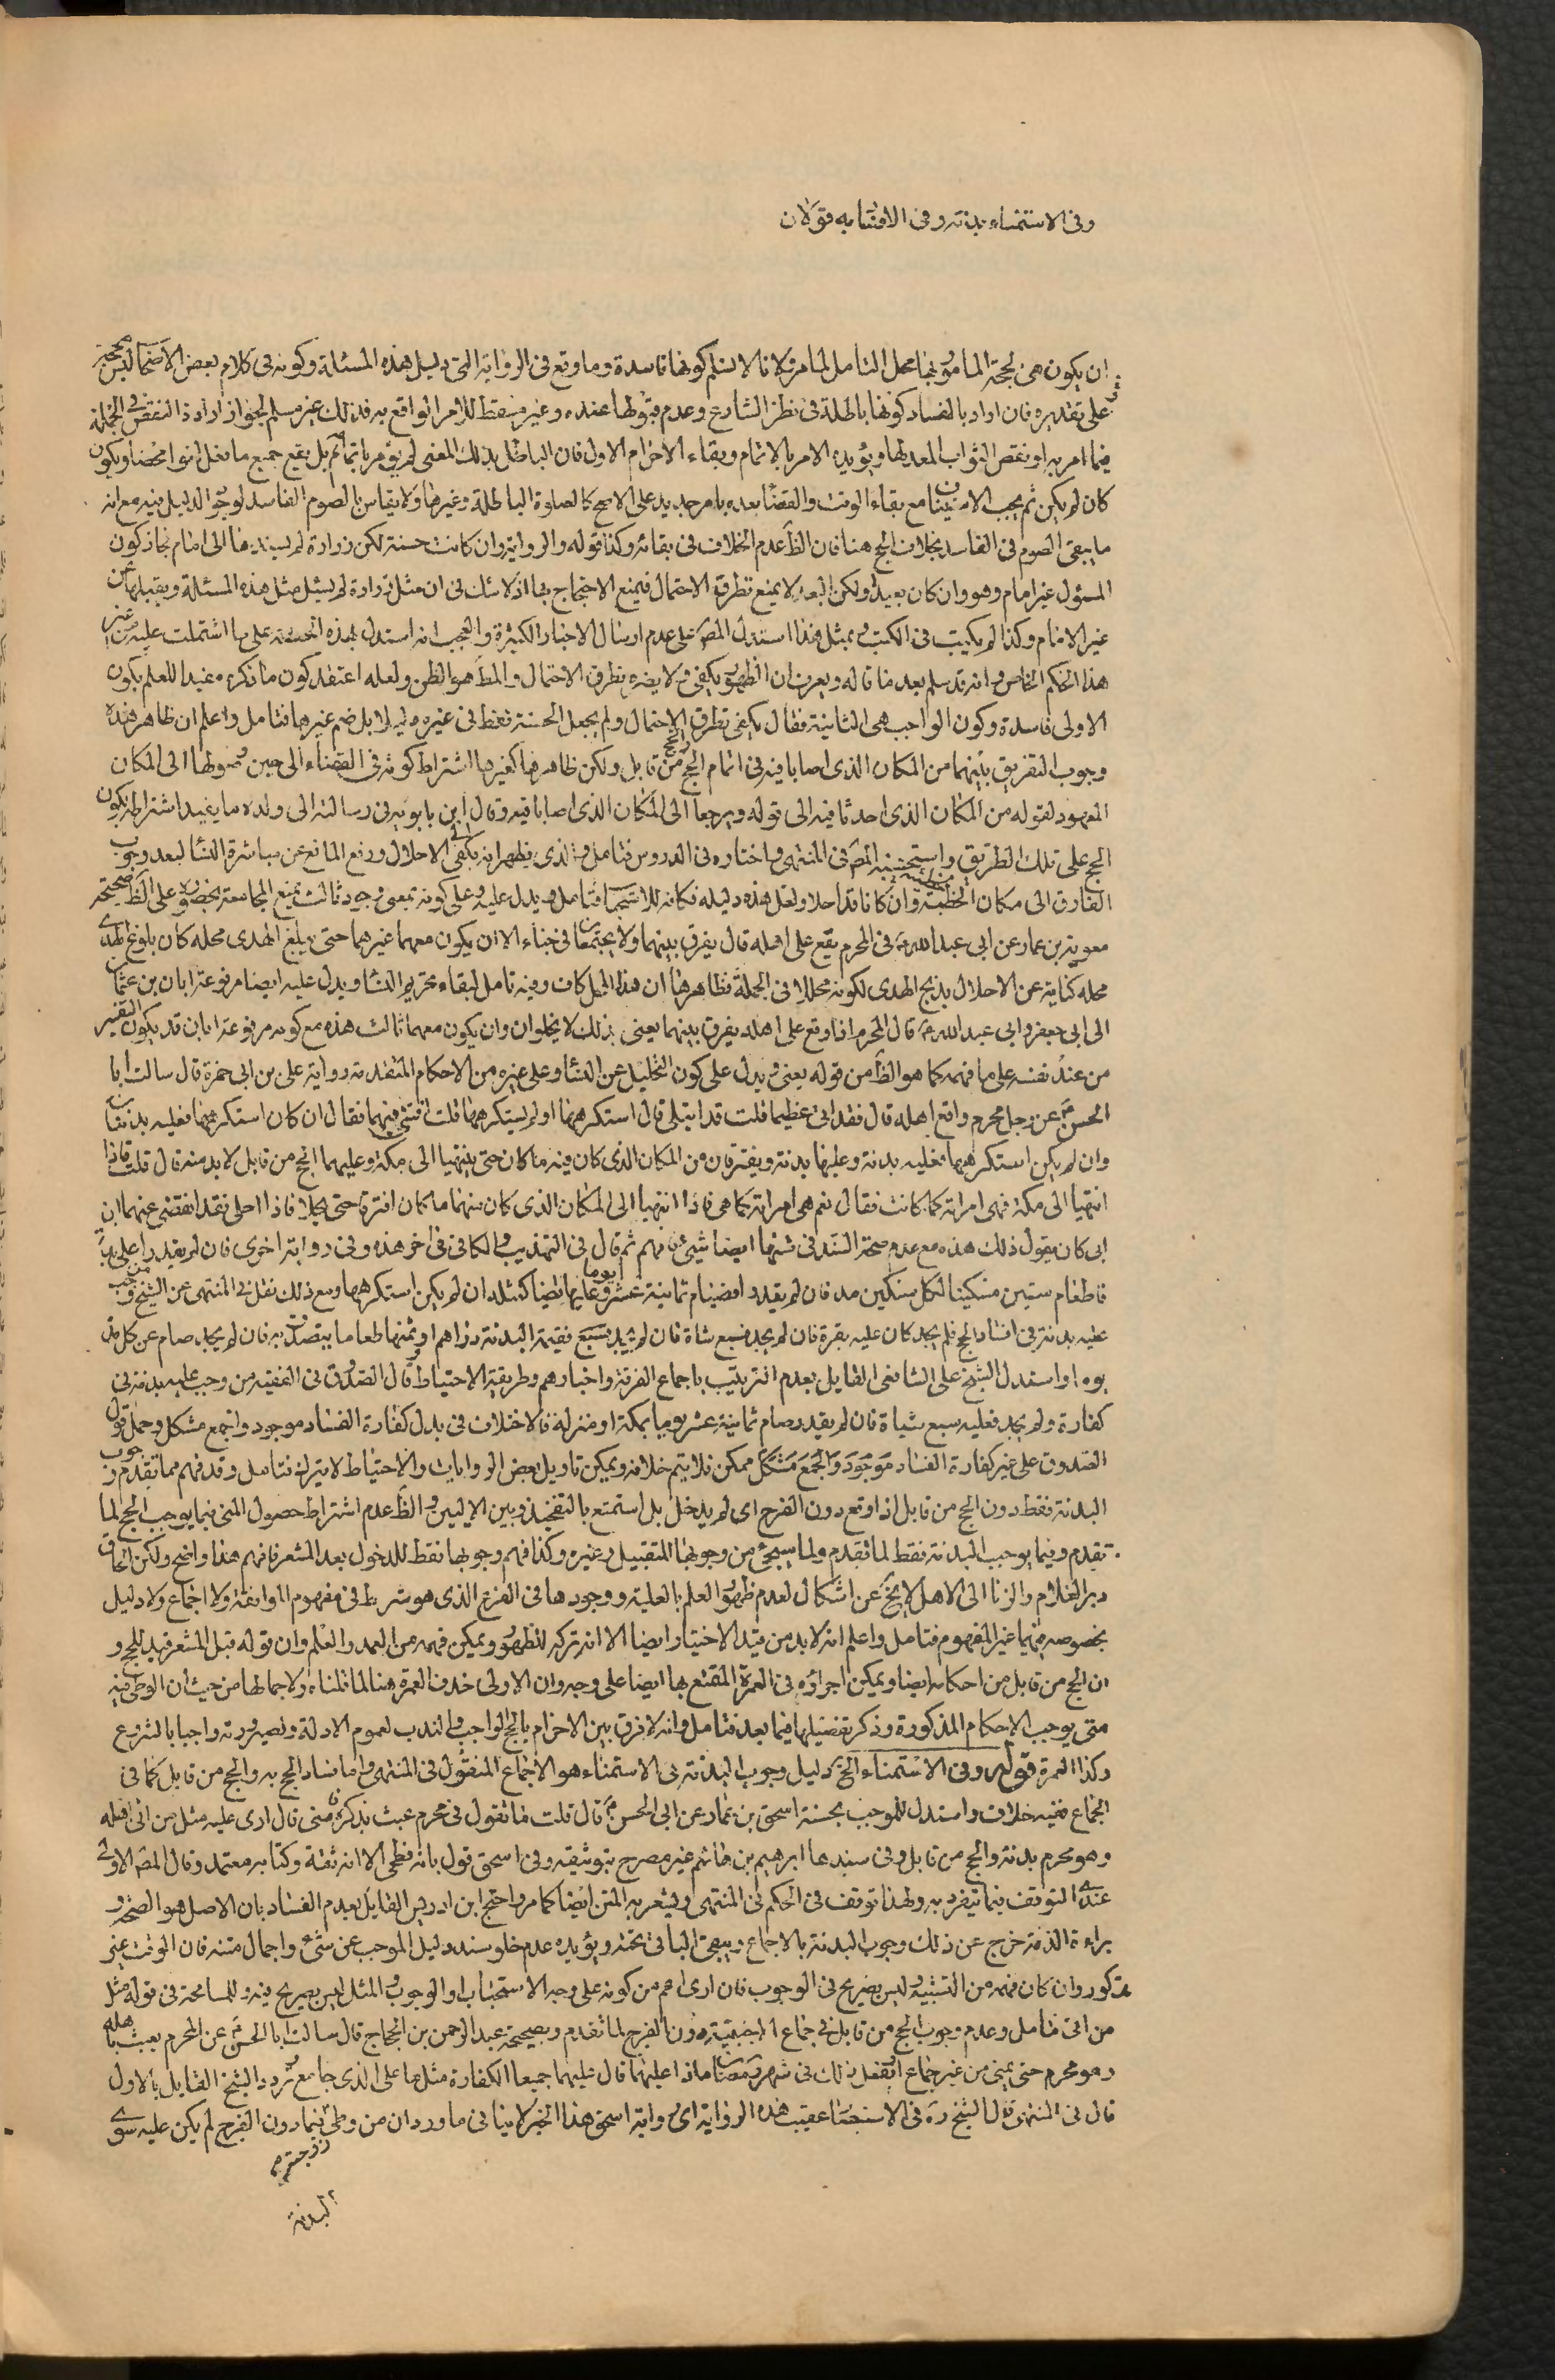 وفي الاستمناء بدنة وفي الافساد به قولان
ان يكون هي لحجة المامور بها محل التامل لما مر لانا لا نسلم كونها فاسدة وما وقع في الرواية التي دليل هذه المسئلة وكونه في كلام بعض الاصحاب ليس بحجة
على تقديره فان اراد بالفساد كونها باطلة في نظر الشارع وعدم قبولها عنده وغير مسقط للامر الواقع به فذلك غير مسلم لجواز ارادة النقص في الجملة
فيما امر به او نقص الثواب المعد لها ويؤيده الامر بالاتمام وبقاء الاحرام الاول فان الباطل بذلك المعنى لم يؤمر باتمامه بل يقع جميع ما فعل لغوا محضا ويكون
كان لم يكن ثم يجب الاتيان مع بقاء الوقت والقضا بعده بامر جديد على الاصح كالصلوة الباطلة وغيرها ولا يقاس بالصوم الفاسد لوجود الدليل فيه مع انه
ما يبقى الصوم في الفاسد بخلاف الحج هنا فان الظ عدم الخلاف في بقائه وكذا قوله والرواية وان كانت حسنة لكن زرارة لم يسندها الى امام فجاز كون
المسؤل غير امام وهو وان كان بعيدا ولكن البعد لا يمنع تطرق الاحتمال فيمنع الاحتجاج بها اذ لا شك في ان مثل زرارة لم يسئل مثل هذه المسئلة ويقبلها من
غير الامام وكذا لم يكتب في الكتب وبمثل هذا استدل المص على عدم ارسال الاخبار الكثيرة والعجب انه استدل بهذه الحسنة على ما اشتملت عليه من غير
هذا الحكم الخاص وانه قد سلم بعد ما قاله ويعرف ان الظهور يكفي ولا يضره تطرق الاحتمال والمط هو الظن ولعله اعتقد كون ما ذكره مفيدا للعلم بكون
الاولى فاسدة وكون الواجب هي الثانية فقال يكفي تطرق الاحتمال ولم يجعل الحسنة فقط في غيره دليلا بل ضم غيرها فتامل واعلم ان ظاهر هذه
وجوب التفريق بينهما من المكان الذي اصابا فيه في اتمام الحج والحج من قابل ولكن ظاهرها كغيرها اشتراط كونه في القضاء الى حين وصولها الى المكان
المعهود لقوله من المكان الذي احدثا فيه الى قوله ويرجعا الى المكان الذي اصابا فيه وقال ابن بابويه في رسالته الى ولده ما يفيد اشتراطه بكون
الحج على تلك الطريق واستحسنه المص في المنتهى واختاره في الدروس فتامل والذي يظهر انه يكفي الاحلال ورفع المانع عن مباشرة النسا لبعد وجوب
الفارق الى مكان الخطيئة وان كانا قد احلا ولعل هذه دليله فكانه للاستحباب فتامل ويدل عليه وعلى كونه بمعنى وجود ثالث يمنع المجامعة بحضوره على الظ صحيحة
معوية بن عمار عن ابي عبد الله ع في المحرم يقع على اهله قال يفرق بينهما ولا يجتمعان في خباء الا ان يكون معهما غيرهما حتى يبلغ الهدى محله كان بلوغ الهدى
محله كناية عن الاحلال بذبح الهدى لكونه محللا في الجملة فظاهرها ان هذا المحل كاف وفيه تامل لبقاء تحريم النسا ويدل عليه ايضا مرفوعة ابان بن عثمان
الى ابي جعفر وابي عبد الله ع قال المحرم اذا وقع على اهله يفرق بينهما يعني بذلك لا يخلوان وان يكون معهما ثالث هذه مع كونه مرفوعة ابان قد يكون التفسير
من عند نفسه على ما فهمه كما هو الظ من قوله يعني ويدل على كون التحليل عن النسا وعلى غيره من الاحكام المتقدمة رواية علي بن ابي حمزة قال سالت ابا
الحسن ع عن رجل محرم واقع اهله قال فقد اتى عظيما قلت قد ابتلى قال استكرهها او لم يستكرهها قلت افتني فيهما فقال ان كان استكرهها فعليه بدنتان
وان لم يكن استكرهها فعليه بدنة وعليها بدنة ويفترقان من المكان الذي كان فيه ما كان حتى ينتهيا الى مكة وعليهما الحج من قابل لا بد منه قال قلت فاذا
انتهيا الى مكة فهي امراته كما كانت فقال نعم هي امراته كما هي فاذا انتهيا الى المكان الذي كان منهما ما كان افترقا حتى يحلا فاذا احلا فقد انقضى عنهما ان
ابي كان يقول ذلك هذه مع عدم صحة السند في متنها ايضا شيئ فافهم ثم قال في التهذيب والكافي في اخر هذه وفي رواية اخرى فان لم يقدرا على بدنة
فاطعام ستين مسكينا لكل مسكين مد فان لم يقدرا فصيام ثمانية عشر يوما وعليها ايضا كمثله ان لم يكن استكرهها ومع ذلك نقل في المنتهى عن الشيخ من وجب
عليه بدنة في افساد الحج فلم يجد كان عليه بقرة فان لم يجد فسبع شاة فان لم يجد فقيمة البدنة دراهم او ثمنها طعاما يتصدق به فان لم يجد صام عن كل مد
يوما واستدل الشيخ على الشافعي القايل بعدم الترتيب باجماع الفرقة واخبارهم وطريقة الاحتياط وقال الصدوق في الفقيه من وجب عليه بدنة في
كفارة ولم يجد فعليه سبع شياة فان لم يقدر صام ثمانية عشر يوما بمكة او منزله فالاختلاف في بدل كفارة الفساد موجود والجمع مشكل وحمل قول
الصدوق على غير كفارة الفساد موجود والجمع مشكل ممكن فلا يتم خلافه ويمكن تاويل بعض الروايات والاحتياط لا يترك فتامل وقد فهم مما تقدم وجوب
البدنة فقط دون الحج من قابل اذا وقع دون الفرج اي لم يدخل بل استمتع بالتفخيذ وبين الاليين والظ عدم اشتراط حصول المنى فيما يوجب الحج لما
تقدم وفيما يوجب البدنة فقط لما تقدم ولما سيجئ من وجوبها للتقبيل وغيره وكذا فهم وجوبها فقط للدخول بعد المشعر فافهم هذا واضح ولكن الحاق
دبر الغلام والزنا الى الاهل لا يخ عن اشكال لعدم ظهور العلم بالعلية ووجودها في الفرع الذي هو شرط في مفهوم الموافقة ولا اجماع ولا دليل
بخصوصه فيهما غير المفهوم فتامل واعلم انه لا بد من قيد الاختيار ايضا الا انه تركه للظهور ويمكن فهمه من العمد والعلم وان قوله قبل المشعر قيد للحج و
ان الحج من قابل من احكامه ايضا ويمكن اجراؤه في العمرة المتمتع بها ايضا على وجه وان الاولى حذف العمرة هنا لما قلناه ولاجمالها من حيث ان الوطي فيه
متى يوجب الاحكام المذكورة وذكر تفصيلها فيما بعد فتامل وانه لا فرق بين الاحرام بالحج الواجب والندب لعموم الادلة ولصيرورته واجبا بالشروع
وكذا العمرة قوله وفي الاستمناء الخ دليل وجوب البدنة في الاستمناء هو الاجماع المنقول في المنتهى واما فساد الحج به والحج من قابل كما في
الجماع ففيه خلاف واستدل للموجب بحسنة اسحق بن عمار عن ابي الحسن ع قال قلت ما تقول في محرم عبث بذكره فامنى قال ارى عليه مثل من اتى اهله
وهو محرم بدنة والحج من قابل وفي سندها ابرهيم بن هاشم غير مصرح بتوثيقه وفي اسحق قول بانه فطحي الا انه ثقة وكتابه معتمد وقال المص الاولى
عندي التوقف فيما يتفرد به ولهذا توقف في الحكم في المنتهى ويشعر به المتن ايضا كما مر واحتج ابن ادريس القايل بعدم الفساد بان الاصل هو الصحة و
براءة الذمة خرج عن ذلك وجوب البدنة بالاجماع ويبقى الباقي تحته ويؤيده عدم خلو سند دليل الموجب عن شئ واجمال متنه فان الوقت غير
مذكور وان كان فهمه من التشبيه ليس بصريح في الوجوب فان ارى اعم من كونه على وجه الاستحباب او الوجوب والمثل ليس بصريح فيه وللمسامحة في قوله مثل
من اتى فتامل وعدم وجوب الحج من قابل في جماع دون الفرج لما تقدم وبصحيحة عبد الرحمن بن الحجاج قال سالت ابا الحسن ع عن المحرم يعبث باهله
وهو محرم حتى يمنى من غير جماع او يفعل ذلك في شهر رمضان ماذا عليهما قال عليهما جميعا الكفارة مثل ما على الذي جامع وتردد الشيخ القايل بالاول
قال في المنتهى قال الشيخ ره في الاستبصار عقيب هذه الرواية اي رواية اسحق هذا الخبر لا ينافي ما ورد ان من وطئ فيما دون الفرج لم يكن عليه سوى
البدنة